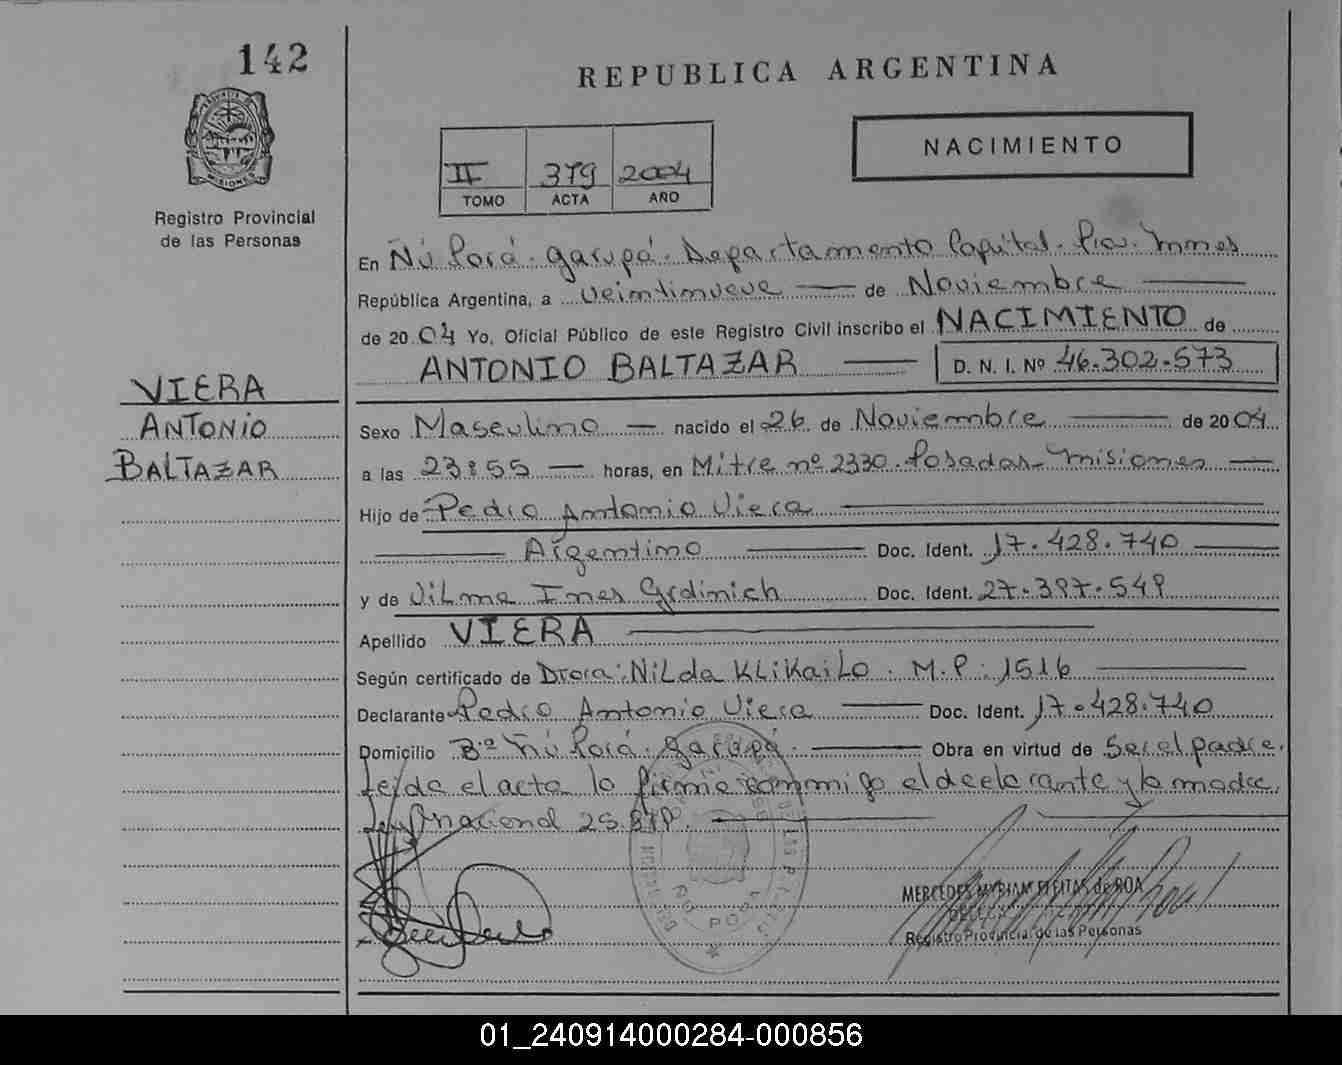 142
REPUBLICA ARGENTINA
NACIMIENTO
II 379 2004
TOMO ACTA AÑO
Registro Provincial
de las Personas
En Ñú Porá. Garupá. Departamento Capital. Prov. Mnes
República Argentina, a veintinueve de Noviembre
de 2004 Yo, Oficial Público de este Registro Civil inscribo el NACIMIENTO de
ANTONIO BALTAZAR D. N. I. Nº 46.302.573
VIERA
ANTONIO
BALTAZAR
Sexo Masculino nacido el 26 de Noviembre de 2004
a las 23:55 horas, en Mitre nº 2330. Posadas- Misiones
Hijo de Pedro Antonio Viera
Argentino Doc. Ident. 17.428.740
y de Vilma Ines Grdinich Doc. Ident. 27.397.549
Apellido VIERA
Según certificado de Drora: Nilda Klikailo. M.P: 1516
Declarante Pedro Antonio Viera Doc. Ident. 17.428.740
Domicilio Bº Ñú Porá. Garupá. Obra en virtud de Ser el padre.
Leída el acta la firma conmigo el declarante y la madre.
Ley nacional 25.819.
ÑU PORA
MERCEDES MYRIAM FLEITAS de ROA
Registro Provincial de las Personas
01_240914000284-000856